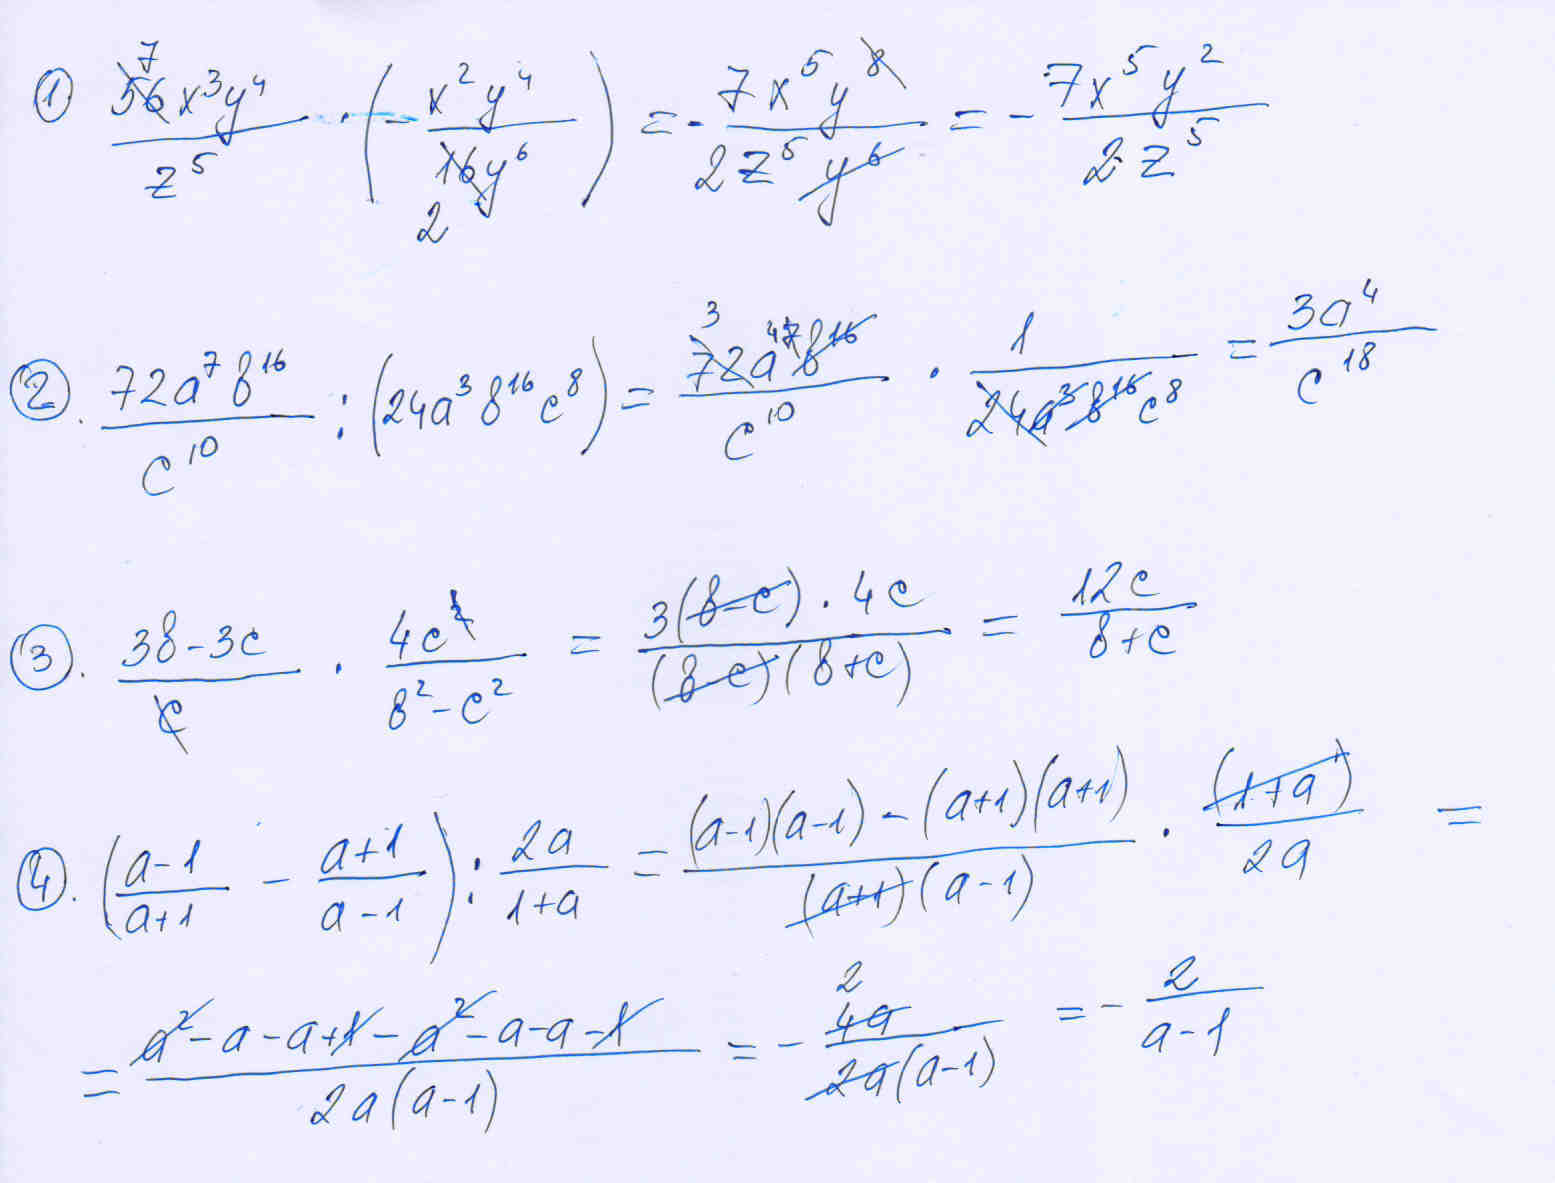 ① 56x³y⁴/z⁵ · (− x²y⁴/16y⁶) = − 7x⁵y⁸/2z⁵y⁶ = − 7x⁵y²/2z⁵
② 72a⁷b¹⁶/c¹⁰ : (24a³b¹⁶c⁸) = 72a⁷b¹⁶/c¹⁰ · 1/24a³b¹⁶c⁸ = 3a⁴/c¹⁸
③ 3b−3c/c · 4c²/b²−c² = 3(b−c)·4c/(b−c)(b+c) = 12c/b+c
④ (a−1/a+1 − a+1/a−1) : 2a/1+a = (a−1)(a−1)−(a+1)(a+1)/(a+1)(a−1) · (1+a)/2a =
= a²−a−a+1−a²−a−a−1/2a(a−1) = − 4a/2a(a−1) = − 2/a−1